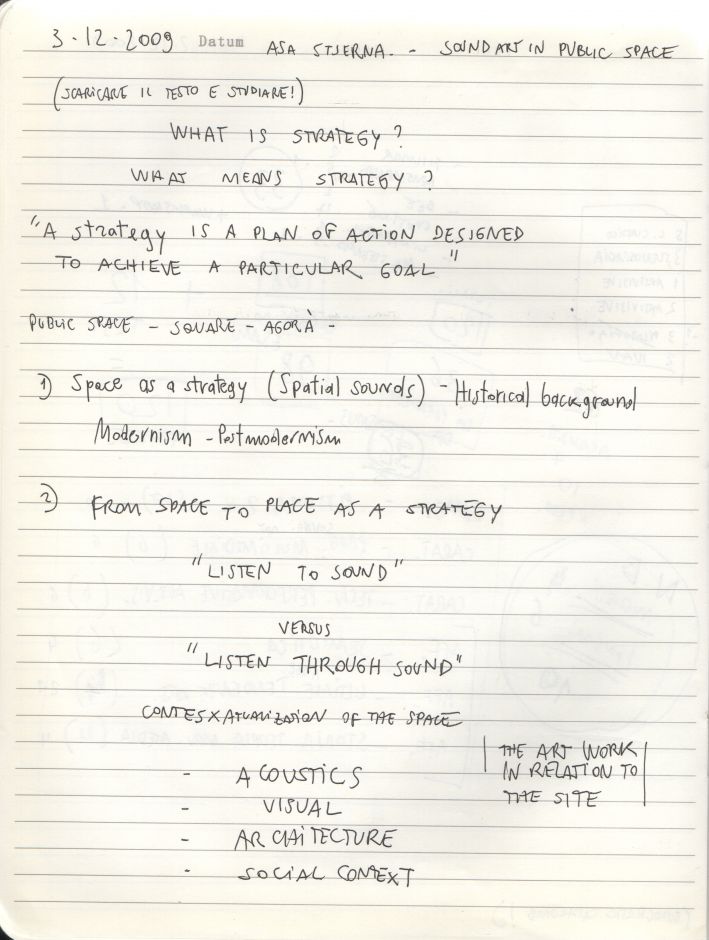 3-12-2009 Datum ASA STJERNA. - SOUND ART IN PUBLIC SPACE
(SCARICARE IL TESTO E STUDIARE!)
WHAT IS STRATEGY?
WHAT MEANS STRATEGY?
"A strategy IS A PLAN OF ACTION DESIGNED
TO ACHIEVE A PARTICULAR GOAL"
PUBLIC SPACE - SQUARE - AGORÀ -
1) Space as a strategy (Spatial sounds) - Historical background
Modernism - Postmodernism
2) FROM SPACE TO PLACE AS A STRATEGY
"LISTEN TO SOUND"
VERSUS
"LISTEN THROUGH SOUND"
OF THE SPACE
THE ART WORK
IN RELATION TO
THE SITE
- ACOUSTICS
- VISUAL
- ARCHITECTURE
- SOCIAL CONTEXT